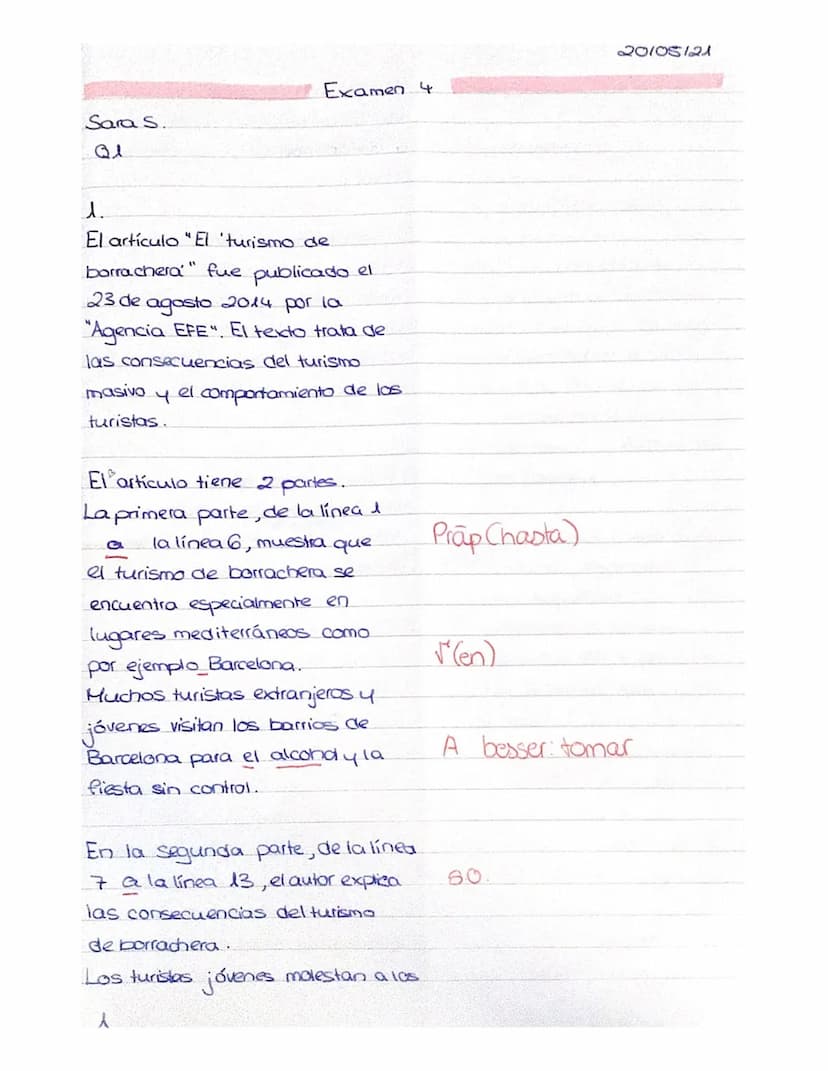 20/05/21
Examen 4
Sara S.
Q1
1.
El artículo "El 'turismo de
borrachera'" fue publicado el
23 de agosto 2014 por la
"Agencia EFE". El texto trata de
las consecuencias del turismo
masivo y el comportamiento de los
turistas.
El artículo tiene 2 partes.
La primera parte, de la línea 1
a la línea 6, muestra que Präp (hasta)
el turismo de borrachera se
encuentra especialmente en
lugares mediterráneos como
por ejemplo Barcelona. √ (en)
Muchos turistas extranjeros y
jóvenes visitan los barrios de
Barcelona para el alcohol y la A besser: tomar
fiesta sin control.
En la segunda parte, de la línea
7 a la línea 13, el autor explica s.o.
las consecuencias del turismo
de borrachera.
Los turistas jóvenes molestan a los
1